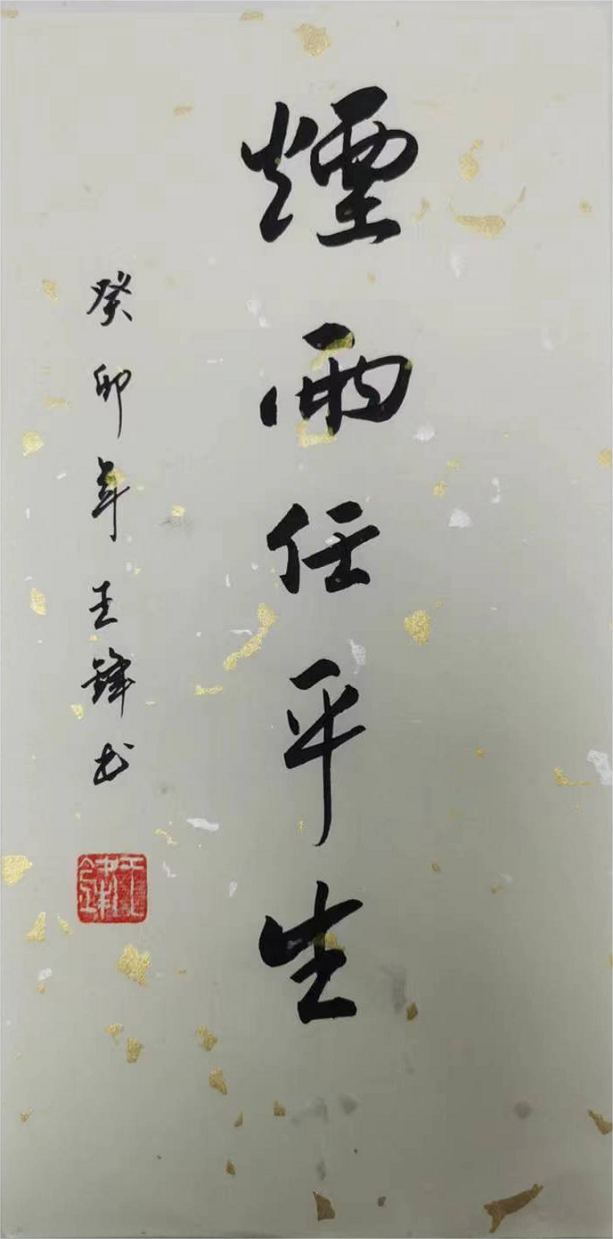 煙雨任平生
癸卯年王鋒书